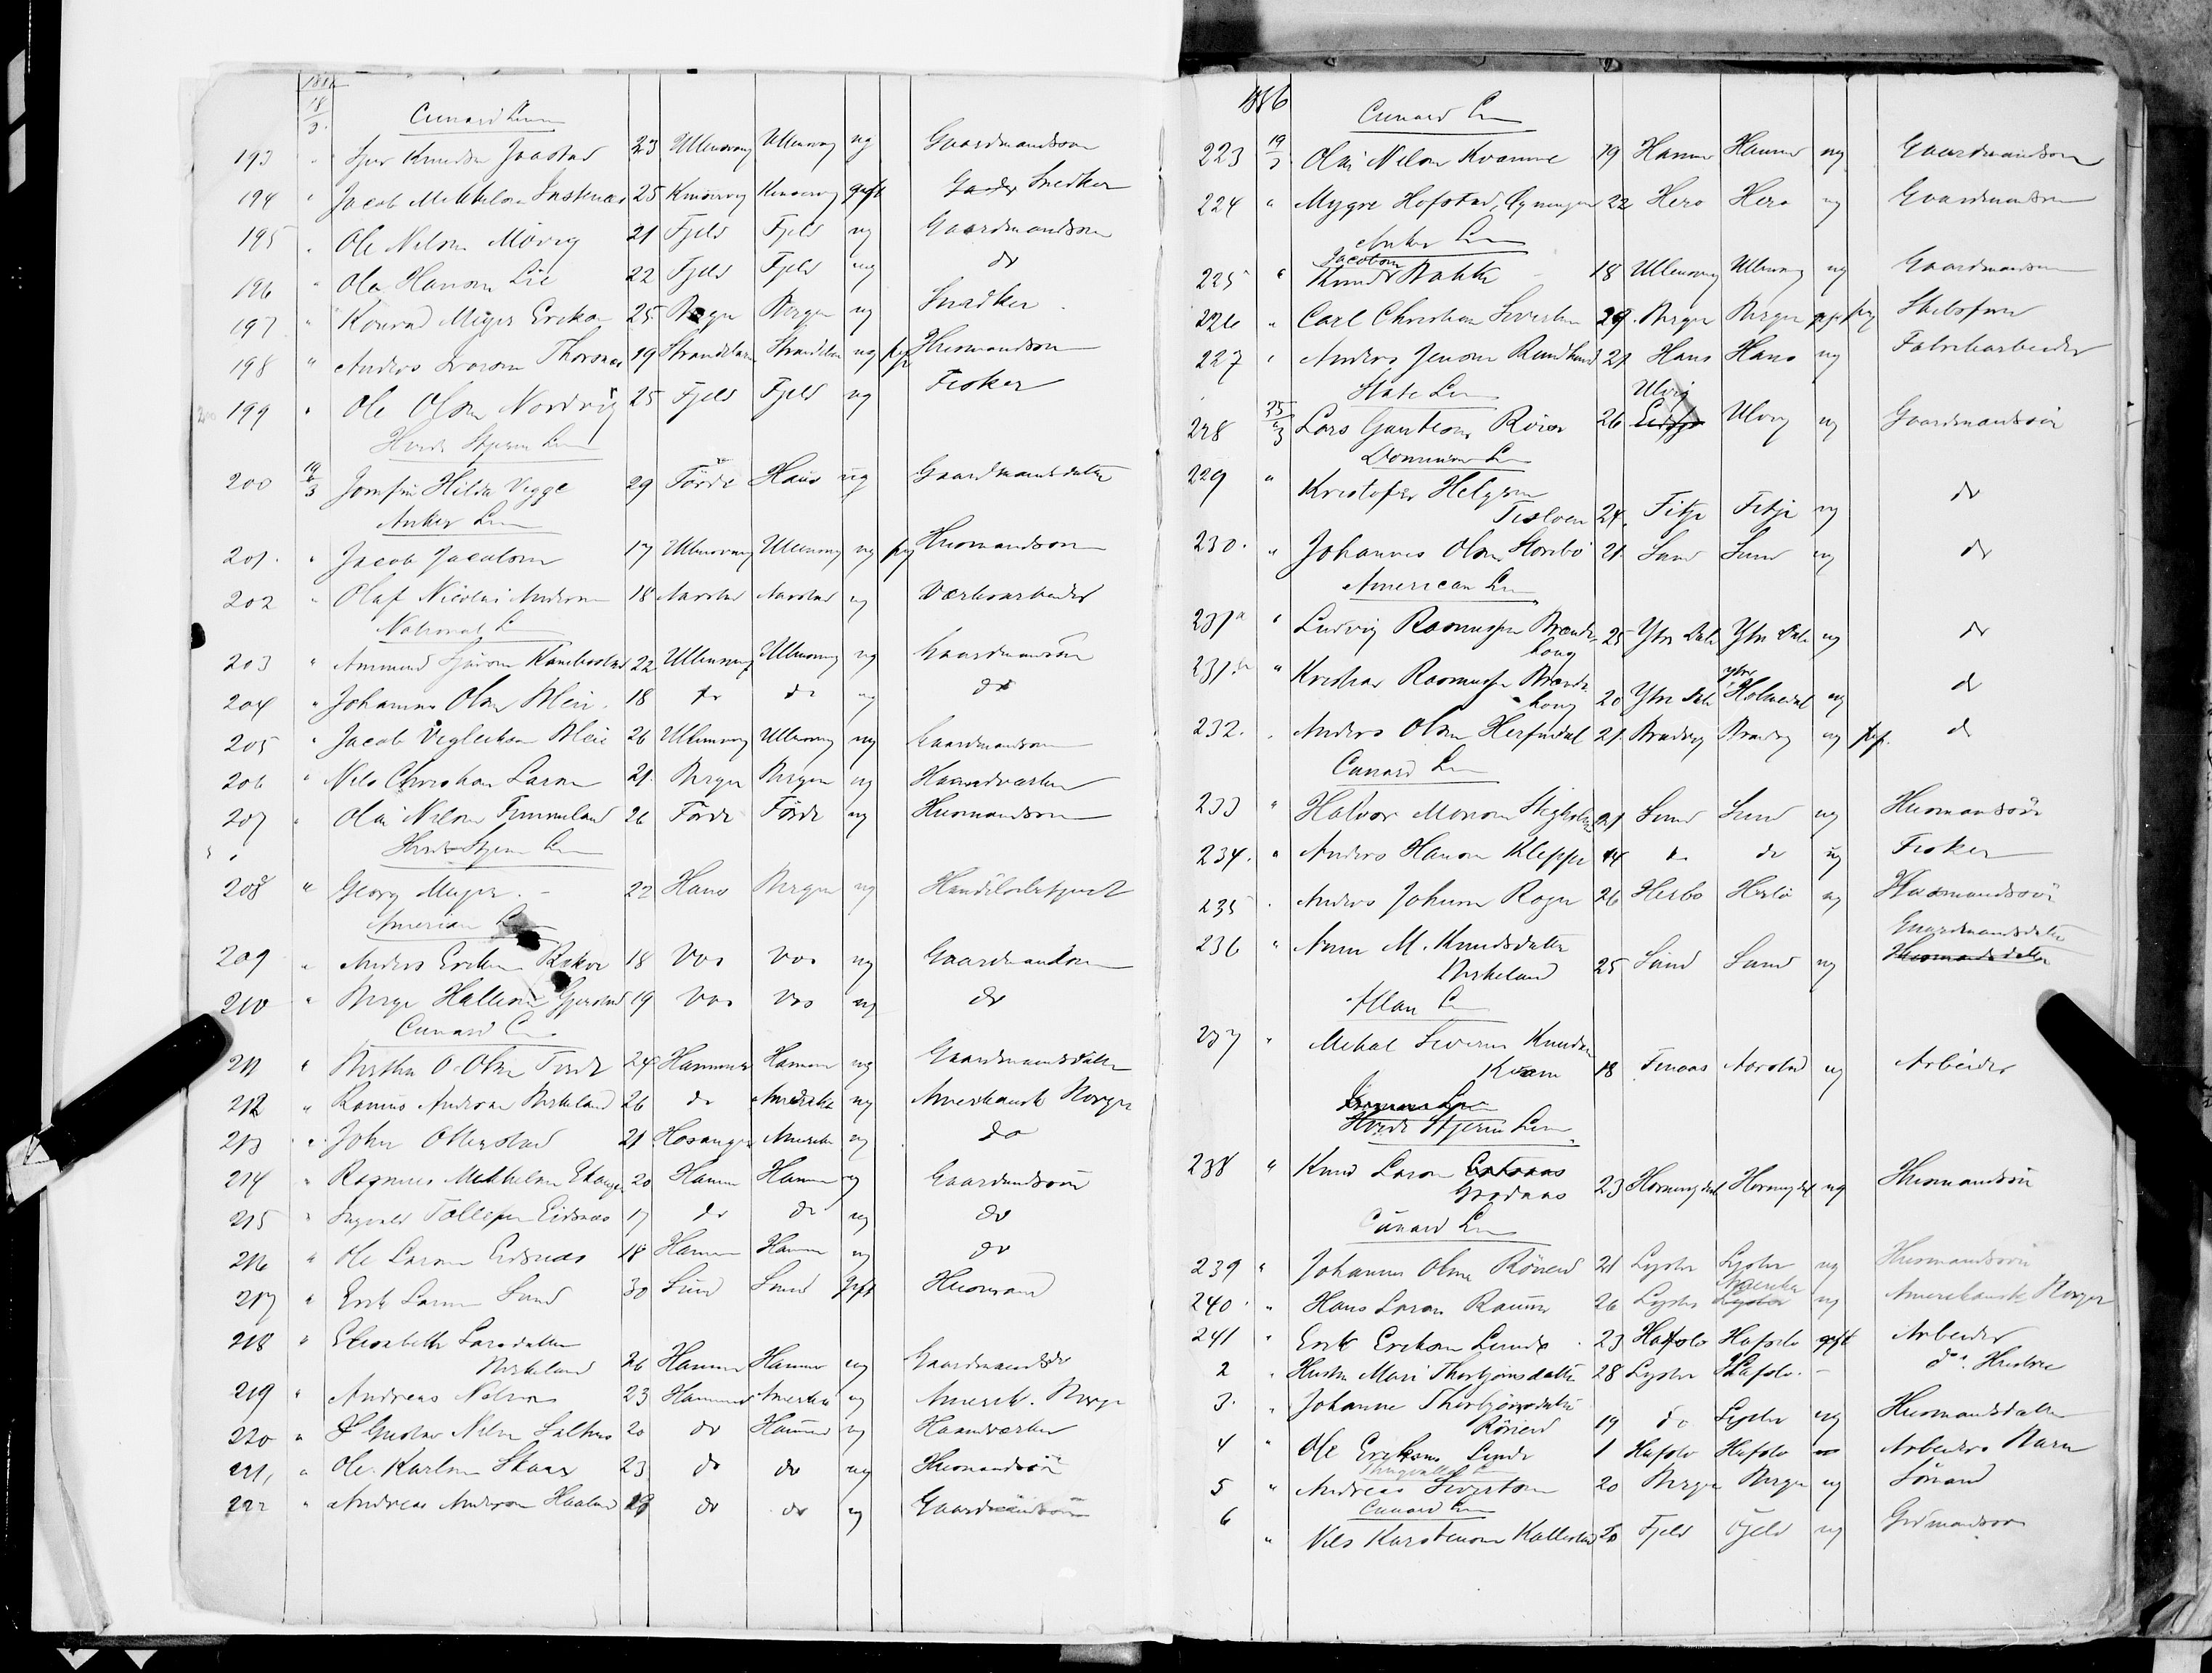 1886
18/3 Cunard Line
193 " Sjur Knudsen Jaastad 23 Ullensvang Ullensvang ug Gaardmandsøn
194 " Jacob Mikkelsen Sustenæs 25 gift Snedker
195 " Ole Nelsen Møvig 21 Fjeld Fjeld ug Gaardmandsøn
196 " Ola Hansen Lie 22 Fjeld Fjeld ug do
197 " Konrad Meyer Ericksen 25 Bergen Bergen ug Snedker
198 " Anders Larsen Thorsnæs 19 Strandebarm Strandebarm ug Husmandsøn
199 " Ole Olsen Nordvig 25 Fjeld Fjeld ug Fisker
Hvide Stjerne Linie
200 19/3 Jomfru Hilda Vegge 29 Förde Haus ug Gaardmandsdatter
Anker Line
201 " Jacob Jacobsen 17 Ullensvang Ullensvang ug Husmandsøn
202 " Olaf Nicolai Andersen 18 Aarstad Aarstad ug Værksarbeider
National L
203 " Ammund Sjursen 22 Ullensvang Ullensvang ug Gaardmandsøn
204 " Johannes Olsen Bleie 18 do do ug do
205 " Jacob Vigleiksen Bleie 26 Ullensvang Ullensvang ug Gaardmandsøn
206 " Nils Christian Larsen 21 Bergen Bergen ug Haandværker
207 " Ola Nilsen Timmeland 26 Førde Førde ug Husmandsøn
Hvide Stjerne Line
208 " Georg Meyer 22 Haus Bergen ug Handelsbetjent
American L
209 " Anders Ericksen Rekve 18 Vos Vos ug Gaardmandsøn
210 " Berge Hallesen Gjerstad 19 Vos Vos ug do
Cunard L
211 " Bertha O. Olsen 24 Hammer Hammer ug Gaardmandsdatter
212 " Rasmus Andersen Birkeland 26 do Amerika ug Amerikansk Borger
213 " John Otterstad 21 Hosanger Amerika ug do
214 " Rasmus Mikkelsen Ekanger 20 Hammer Hammer ug Gaardmandsøn
215 " Ingvald Tollefsen Eidsnæs 17 do do ug do
216 " Ole Larsen Eidsnæs 18 Hammer Hammer ug do
217 " Erik Larsen Sund 30 Sund Sund gift Husmand
218 " Elisabeth Larsdatter
Birkeland 26 Hammer Hammer ug Gaardmandsdr
219 " Andreas Nelson 23 Hammer Amerika ug Amerik. Borger
220 " Gustav Nilsen Salhus 20 do Hammer ug Haandværker
221 " Ole Karlsen Skaar 23 do do ug Husmandsøn
222 " Andreas Andersen Haaland do do ug Gaardmandsøn
1886 Cunard L
223 19/3 Olai Nilsen Kvamme 19 Hammer Hammer ug Gaardmandsøn
224 " Mygre Hofstad, 22 Herø Herø ug Gaardmandsøn
Anker L
225 " Knud Jacobsen Bakke 18 Ullensvang Ullensvang ug Gaardmandsøn
226 " Carl Christian Sivertsen 29 Bergen Bergen gift Skibsfører
227 " Anders Jensen Rundhaug 21 Haus Haus ug Fabrikarbeider
State L
228 25/3 Lars Gunlesen Røise 26 Ulvig Ulvig ug Gaardmandsøn
Dominion L
229 " Kristofer Helgesen
Tisløen 24 Fitje Fitje ug do
230 " Johannes Olsen Storebø 21 Sund Sund ug do
American L
231a " Ludvig Rasmussen Brænde-
houg 25 Ytre Dale Ytre Dale ug do
231b " Kristian Rasmussen Brænde-
houg 20 Ytre Dale ytre Holmedal ug do
232 " Anders Olsen Herfindal 21 ug do
Cunard L
233 " Halvor Monsen 21 Sund Sund ug Husmandsøn
234 " Anders Hansen Kleppe 44 do do ug Fisker
235 " Anders Johnsen Roger 26 Herlø Herlø ug Husmandsøn
236 " Anna M. Knudsdatter
Birkeland 25 Sund Sund ug Gaardmandsdatter
Husmandsdatter
Allan L
237 " Mikal Severin Knudsen
Kvam 18 Finaas Aarstad ug Arbeider
Hvide Stjerne Line
238 " Knud Larsen
Grodaas 23 Horningdal Horningdal ug Husmandsøn
Cunard L
239 " Johannes Olsen Røneid 21 Lyster Lyster ug Husmandsøn
240 " Hans Larsen 26 Lyster Amerika Lyster ug Amerikansk Borger
241 " Erik Eriksen Lunde 23 Hafslo Hafslo gift Arbeider
2 " Hustru Mari Thorbjørnsdatter 28 Lyster Hafslo - ds. Hustru
3 " Johanne Thorbjørnsdatter
Røneid 19 do Lyster ug Husmandsdatter
4 " Ole Eriksen Lunde 1 Hafslo Hafslo Arbeiders Barn
Thingvalla L
5 " Andreas Sivertsen 20 Bergen Bergen ug Sømand
Cunard L
6 " Nils Karstensen Kallestad 20 Fjeld Fjeld ug Grdmandsøn